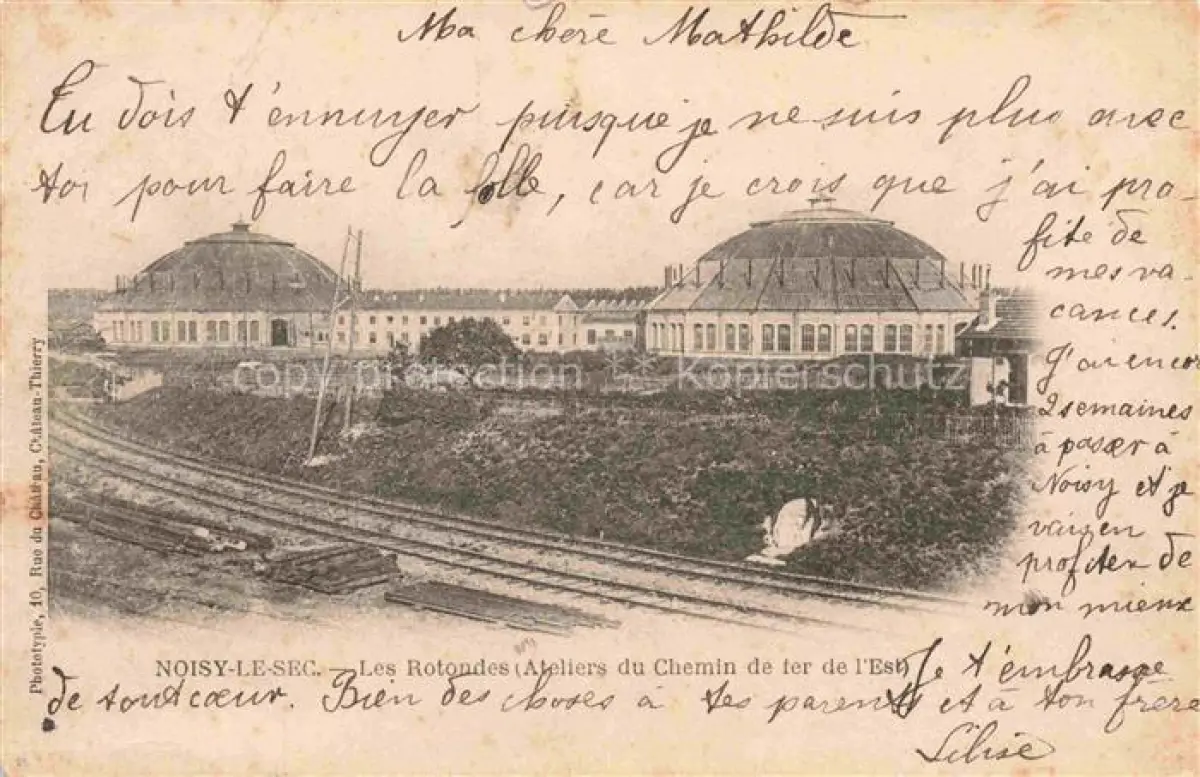 Ma chère Mathilde
Tu dois t'ennuyer puisque je ne suis plus avec
toi pour faire la folle, car je crois que j'ai pro-
fite de
mes va-
cances.
J'ai encor
2 semaines
à passer à
Noisy et je
vais en
profiter de
mon mieux
Je t'embrasse
de tout cœur. Bien des choses à tes parents et à ton frère
Lilise
NOISY-LE-SEC. — Les Rotondes (Ateliers du Chemin de fer de l'Est)
Phototypie, 10, Rue du Château, Château-Thierry
copy protection Kopierschutz